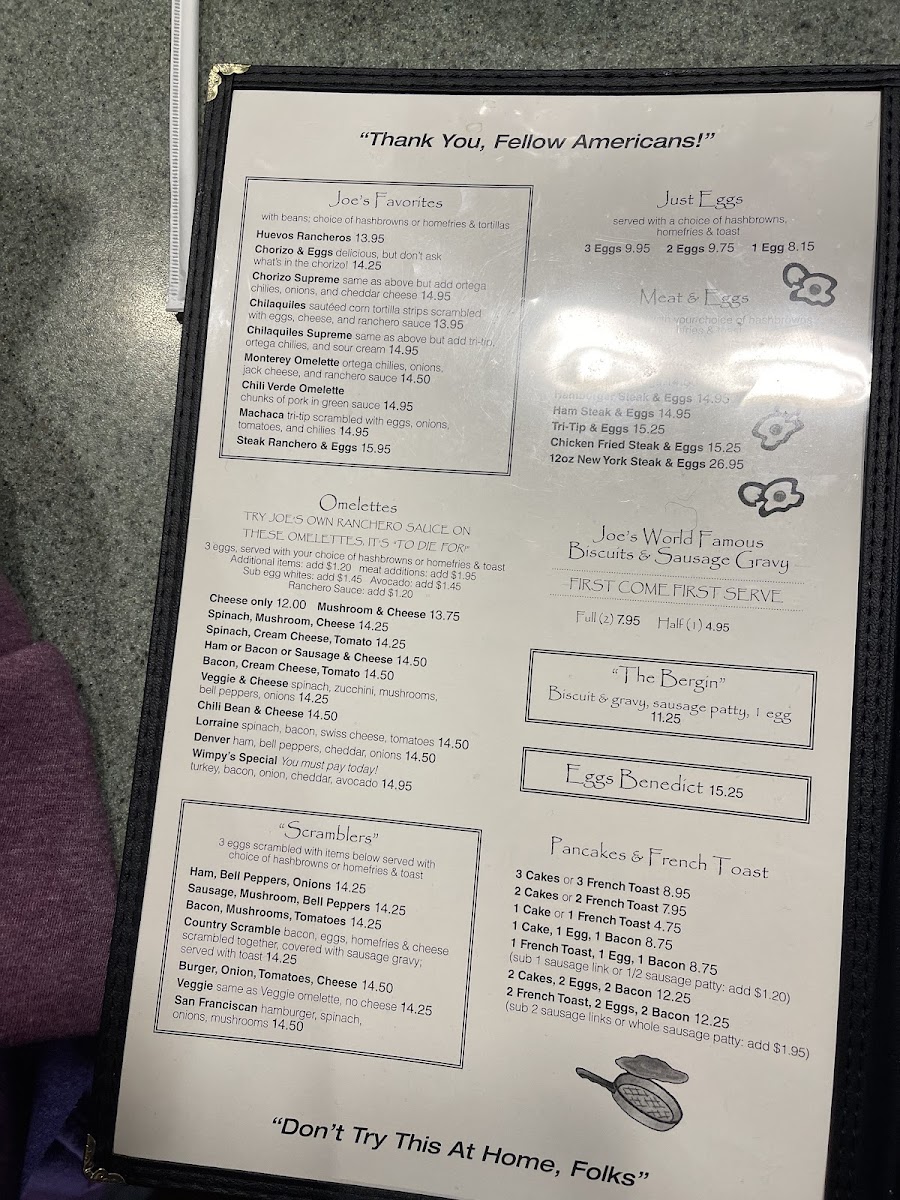 "Thank You, Fellow Americans!"
Joe's Favorites
with beans; choice of hashbrowns or homefries & tortillas
Huevos Rancheros 13.95
Chorizo & Eggs delicious, but don't ask
what's in the chorizo! 14.25
Chorizo Supreme same as above but add ortega
chilies, onions, and cheddar cheese 14.95
Chilaquiles sautéed corn tortilla strips scrambled
with eggs, cheese, and ranchero sauce 13.95
Chilaquiles Supreme same as above but add tri-tip,
ortega chilies, and sour cream 14.95
Monterey Omelette ortega chilies, onions,
jack cheese, and ranchero sauce 14.50
Chili Verde Omelette
chunks of pork in green sauce 14.95
Machaca tri-tip scrambled with eggs, onions,
tomatoes, and chilies 14.95
Steak Ranchero & Eggs 15.95
Omelettes
TRY JOE'S OWN RANCHERO SAUCE ON
THESE OMELETTES. IT'S "TO DIE FOR!"
3 eggs, served with your choice of hashbrowns or homefries & toast
Additional items: add $1.20 meat additions: add $1.95
Sub egg whites: add $1.45 Avocado: add $1.45
Ranchero Sauce: add $1.20
Cheese only 12.00 Mushroom & Cheese 13.75
Spinach, Mushroom, Cheese 14.25
Spinach, Cream Cheese, Tomato 14.25
Ham or Bacon or Sausage & Cheese 14.50
Bacon, Cream Cheese, Tomato 14.50
Veggie & Cheese spinach, zucchini, mushrooms,
bell peppers, onions 14.25
Chili Bean & Cheese 14.50
Lorraine spinach, bacon, swiss cheese, tomatoes 14.50
Denver ham, bell peppers, cheddar, onions 14.50
Wimpy's Special You must pay today!
turkey, bacon, onion, cheddar, avocado 14.95
"Scramblers"
3 eggs scrambled with items below served with
choice of hashbrowns or homefries & toast
Ham, Bell Peppers, Onions 14.25
Sausage, Mushroom, Bell Peppers 14.25
Bacon, Mushrooms, Tomatoes 14.25
Country Scramble bacon, eggs, homefries & cheese
scrambled together, covered with sausage gravy;
served with toast 14.25
Burger, Onion, Tomatoes, Cheese 14.50
Veggie same as Veggie omelette, no cheese 14.25
San Franciscan hamburger, spinach,
onions, mushrooms 14.50
Just Eggs
served with a choice of hashbrowns,
homefries & toast
3 Eggs 9.95 2 Eggs 9.75 1 Egg 8.15
Meat & Eggs
your choice of hashbrowns
Hamburger Steak & Eggs 14.95
Ham Steak & Eggs 14.95
Tri-Tip & Eggs 15.25
Chicken Fried Steak & Eggs 15.25
12oz New York Steak & Eggs 26.95
Joe's World Famous
Biscuits & Sausage Gravy
FIRST COME FIRST SERVE
Full (2) 7.95 Half (1) 4.95
"The Bergin"
Biscuit & gravy, sausage patty, 1 egg
11.25
Eggs Benedict 15.25
Pancakes & French Toast
3 Cakes or 3 French Toast 8.95
2 Cakes or 2 French Toast 7.95
1 Cake or 1 French Toast 4.75
1 Cake, 1 Egg, 1 Bacon 8.75
1 French Toast, 1 Egg, 1 Bacon 8.75
(sub 1 sausage link or 1/2 sausage patty: add $1.20)
2 Cakes, 2 Eggs, 2 Bacon 12.25
2 French Toast, 2 Eggs, 2 Bacon 12.25
(sub 2 sausage links or whole sausage patty: add $1.95)
"Don't Try This At Home, Folks"